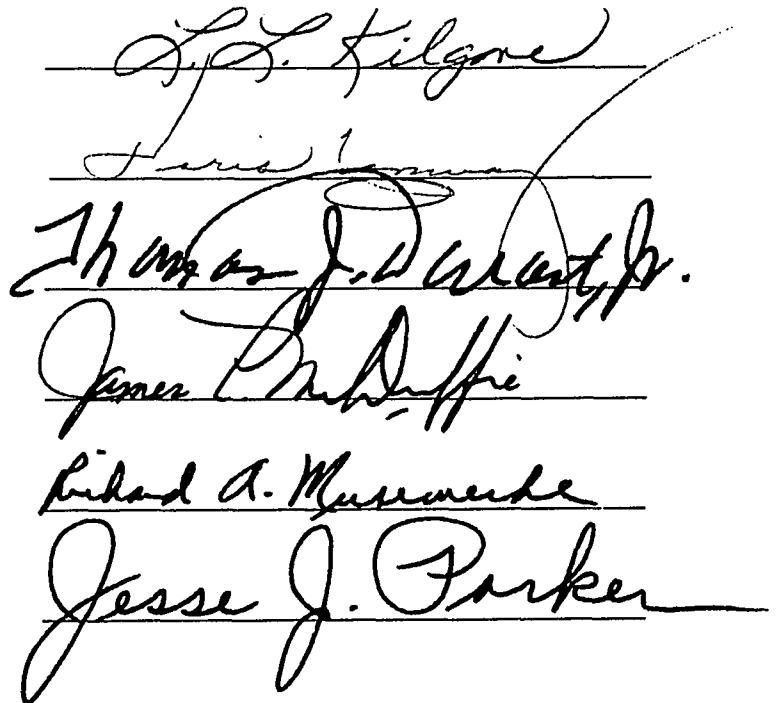 L. L. Kilgore
Thomas J. Durant, Jr.
James L. McDuffie
Richard A. Musemeche
Jesse J. Parker